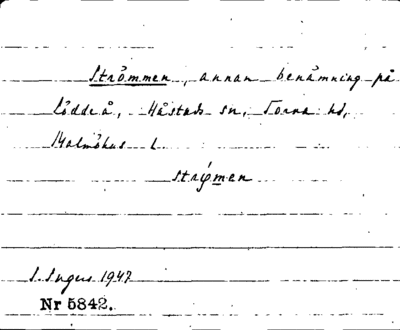 Strömmen, annan benämning på
Lödde å, Håstads sn, Torna hd,
Malmöhus l
strø̍men
S. Ingers 1947
Nr 5842.